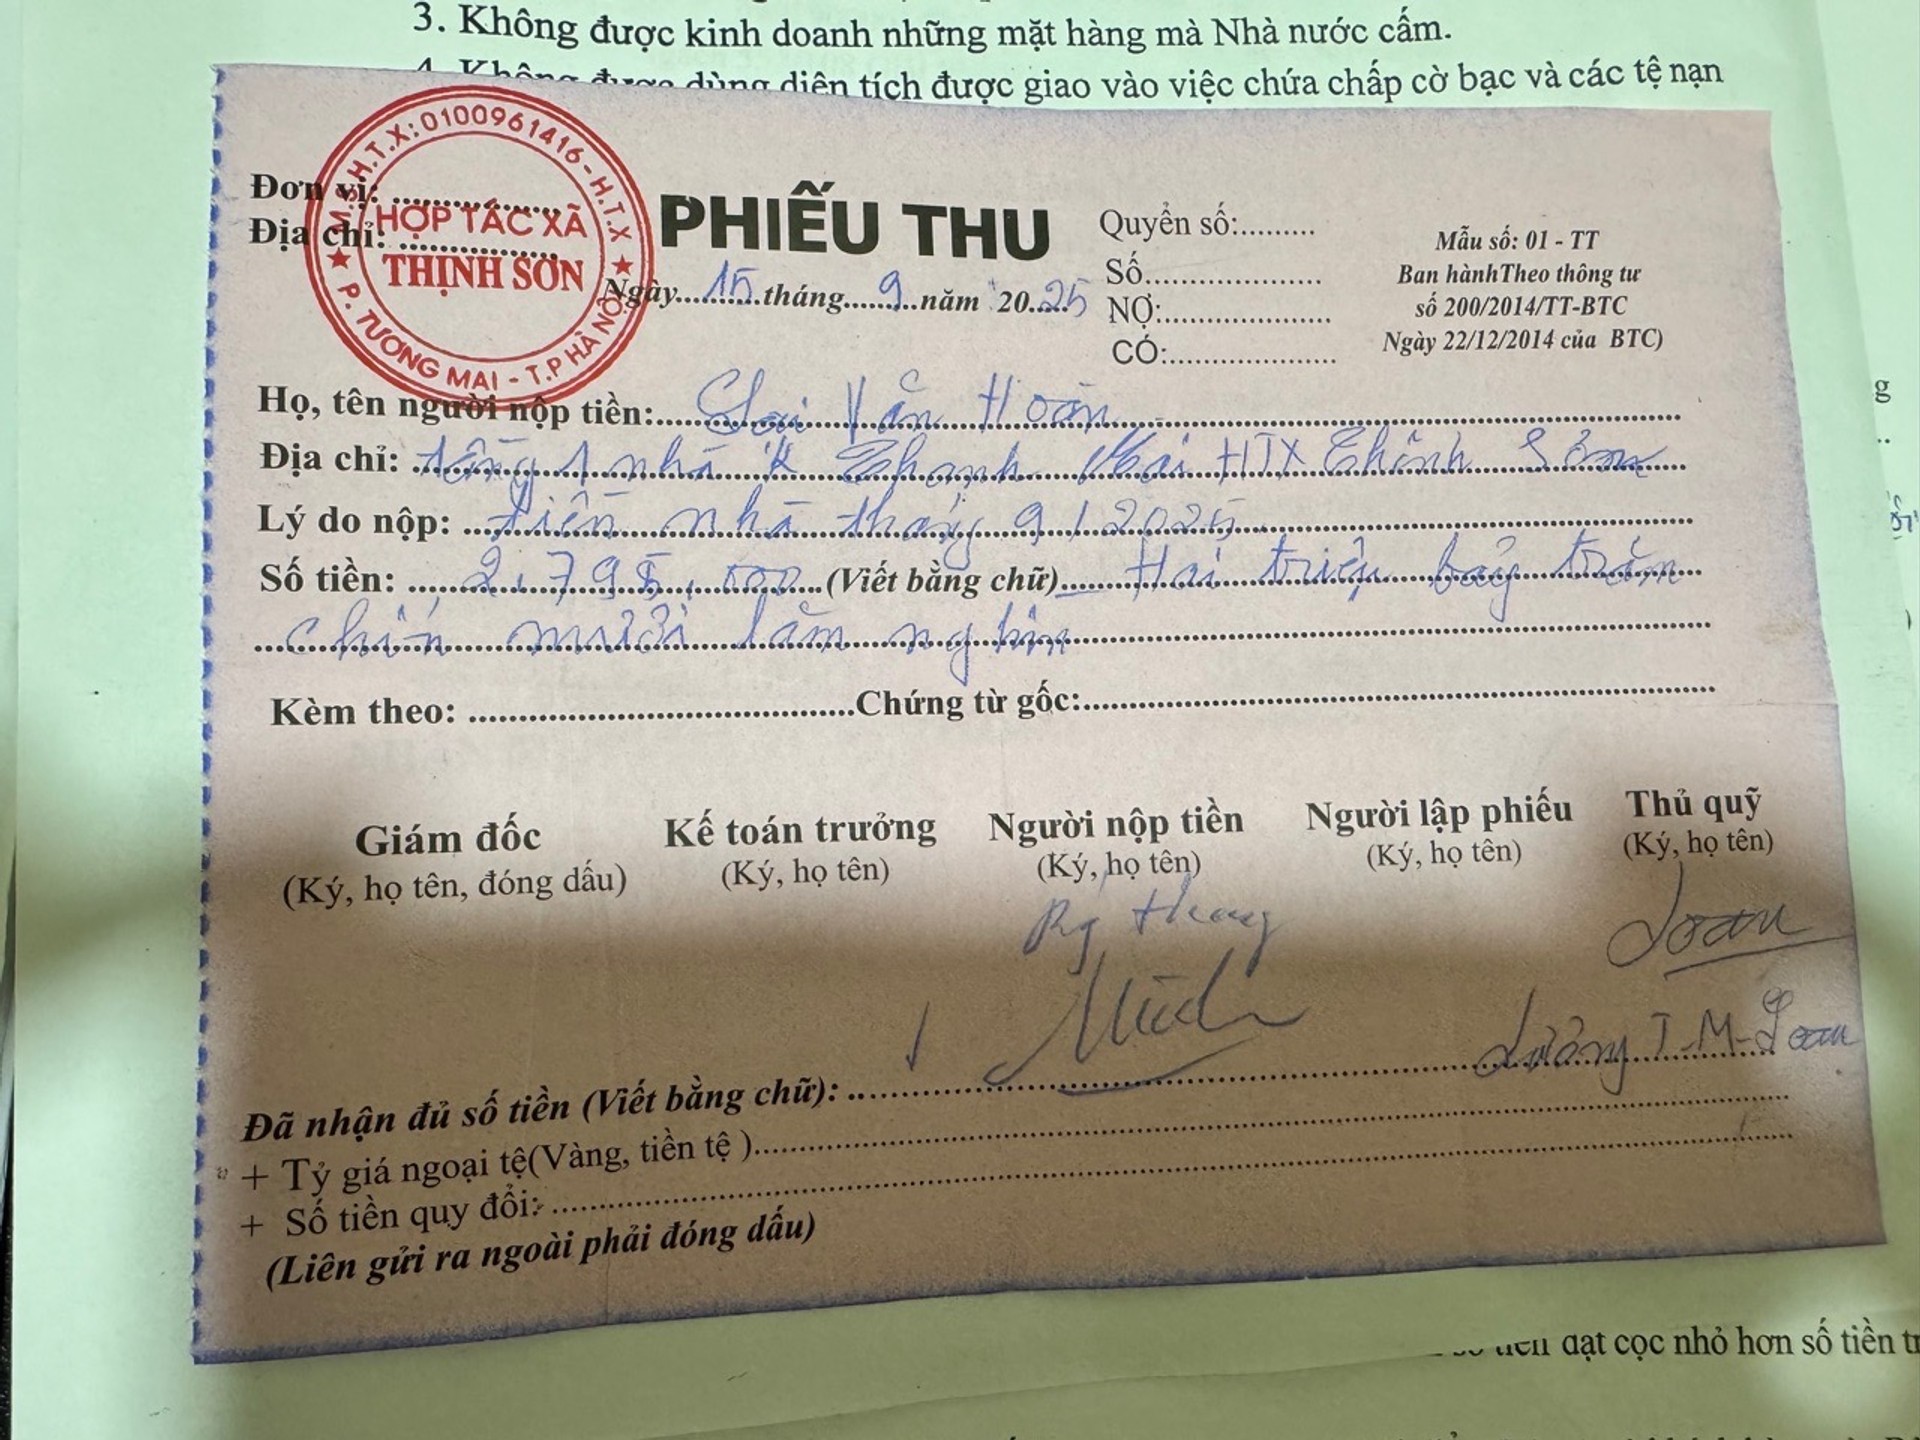 3. Không được kinh doanh những mặt hàng mà Nhà nước cấm.
4. Không được dùng diện tích được giao vào việc chứa chấp cờ bạc và các tệ nạn
M.S.H.T.X: 0100961416 - H.T.X
HỢP TÁC XÃ
THỊNH SƠN
P. TƯƠNG MAI - T.P HÀ NỘI
Đơn vị:
Địa chỉ:
PHIẾU THU
Ngày 15 tháng 9 năm 2025
Quyển số:
Số
NỢ:
CÓ:
Mẫu số: 01 - TT
Ban hànhTheo thông tư
số 200/2014/TT-BTC
Ngày 22/12/2014 của BTC)
Họ, tên người nộp tiền: Văn Hoàn
Địa chỉ: tầng 1 nhà K Thanh Mai HTX Thịnh Sơn
Lý do nộp: tiền nhà tháng 9/2025
Số tiền: 2.795.000 (Viết bằng chữ) Hai triệu bảy trăm
chín mười lăm nghìn
Kèm theo: Chứng từ gốc:
Giám đốc
(Ký, họ tên, đóng dấu)
Kế toán trưởng
(Ký, họ tên)
Người nộp tiền
(Ký, họ tên)
Người lập phiếu
(Ký, họ tên)
Thủ quỹ
(Ký, họ tên)
Loan
Lương T-M-Loan
Đã nhận đủ số tiền (Viết bằng chữ):
+ Tỷ giá ngoại tệ(Vàng, tiền tệ )
+ Số tiền quy đổi:
(Liên gửi ra ngoài phải đóng dấu)
đạt cọc nhỏ hơn số tiền